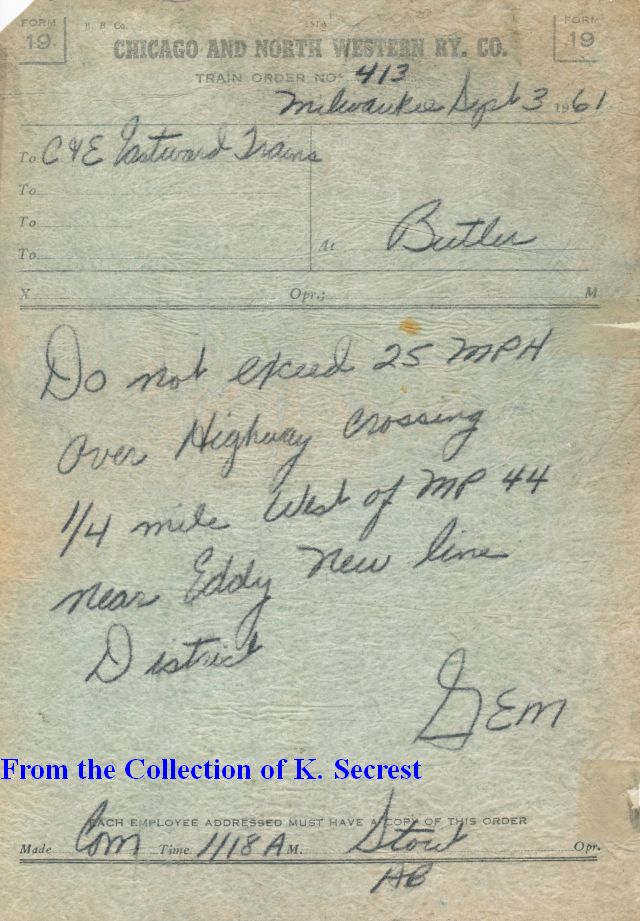 FORM 19 R. R. Co. FORM 19
CHICAGO AND NORTH WESTERN RY. CO.
TRAIN ORDER NO. 413
Milwaukee Sept 3 1961
To C&E Eastward Trains
To
To
To At Butler
X Opr.; M
Do not exceed 25 MPH
over Highway crossing
1/4 mile West of MP 44
near Eddy New line
District
GEM
From the Collection of K. Secrest
EACH EMPLOYEE ADDRESSED MUST HAVE A COPY OF THIS ORDER
Made Com Time 1/18 A M. Stout Opr.